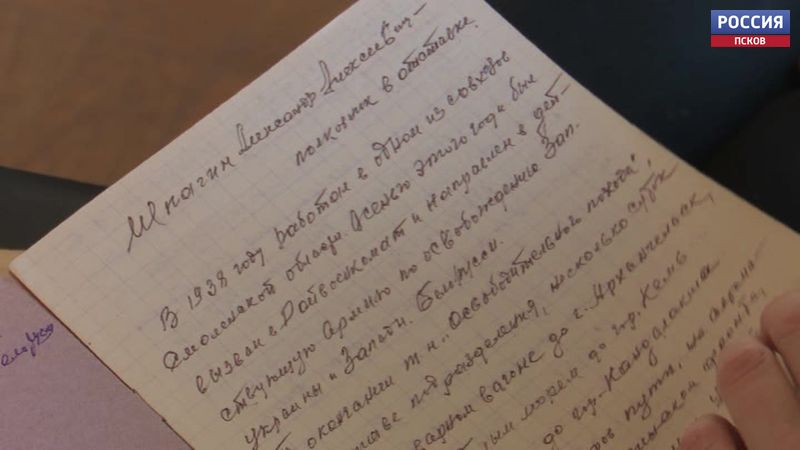 РОССИЯ
ПСКОВ
Шпагин Александр Алексеевич-
полковник в отставке.
В 1938 году работал в одном из совхозов
Смоленской области. Осенью этого года был
вызван в Райвоенкомат и направлен в дей-
ствующую армию по освобождению Зап.
Украины и Западн. Белоруссии.
окончании т.н. „Освободительного похода",
подразделения, несколько суток
товарном вагоне до г. Архангельск,
морем до гор. Кемь
до гор. Кандалакши
пути, на